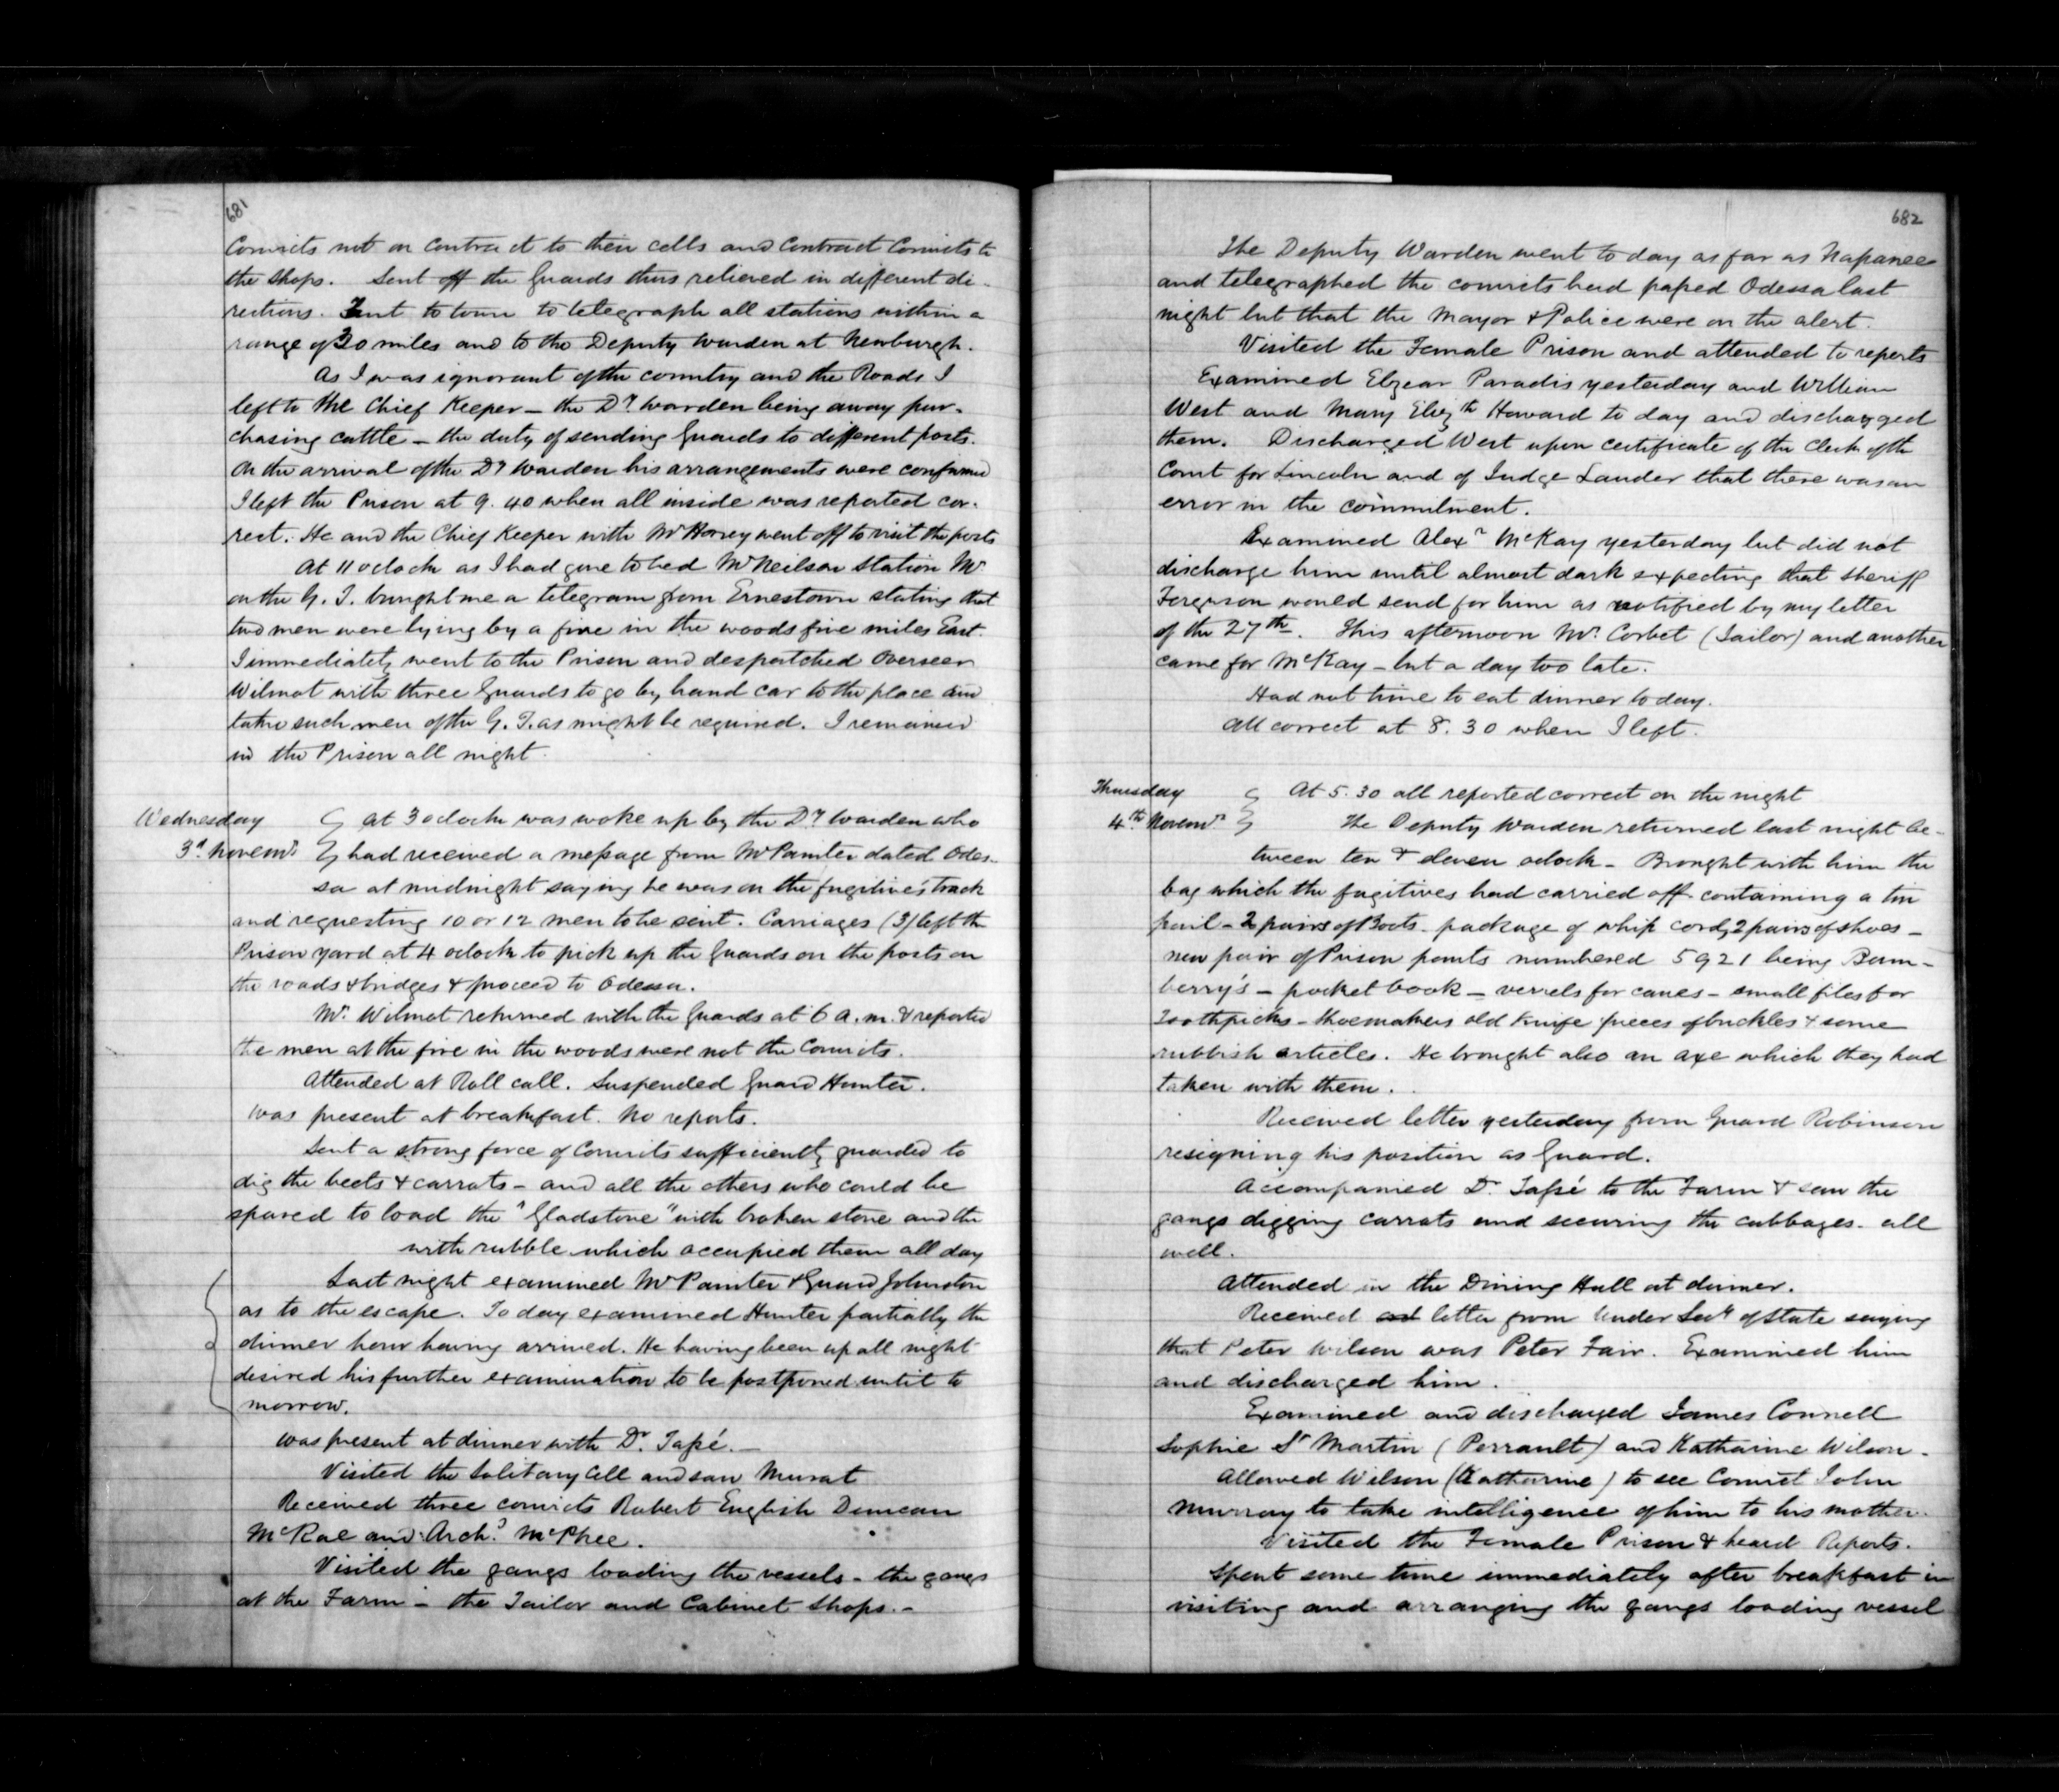 681
Convicts not on contract to their cells and Contract Convicts to
the shops. Sent off the Guards thus relieved in different di-
rections. Sent to town to telegraph all stations within a
range of 20 miles and to the Deputy Warden at Newburgh.
As I was ignorant of the country and the Roads I
left to the Chief Keeper — the Dy Warden being away pur-
chasing cattle — the duty of sending Guards to different posts.
On the arrival of the Dy Warden his arrangements were confirmed
I left the Prison at 9.40 when all inside was reported cor-
rect. He and the Chief Keeper with Mr went off to visit the posts
At 11 oclock as I had gone to bed Mr Neilson Station Mr
on the G. T. brought me a telegram from Ernestown stating that
two men were lying by a fire in the woods five miles East.
I immediately went to the Prison and despatched Overseer
Wilmot with three Guards to go by hand car to the place and
take such men of the G. T. as might be required. I remained
in the Prison all night.
Wednesday
3d Novemr
At 3 oclock was woke up by the Dy Warden who
had received a message from Mr Painter dated Odes-
sa at midnight saying he was on the fugitives track
and requesting 10 or 12 men to be sent. Carriages (3) left the
Prison yard at 4 oclock to pick up the Guards on the posts on
the roads & bridges & proceed to Odessa.
Mr. Wilmot returned with the Guards at 6 a.m. & reported
the men at the fire in the woods were not the Convicts.
Attended at Roll call. Suspended Guard Hunter.
Was present at breakfast. No reports.
Sent a strong force of Convicts sufficiently guarded to
dig the beets & carrots — and all the others who could be
spared to load the "Gladstone" with broken stone and the
with rubble which occupied them all day
Last night examined Mr Painter & Guard Johnston
as to the escape. To day examined Hunter partially the
dinner hour having arrived. He having been up all night
desired his further examination to be postponed until to
morrow.
Was present at dinner with Dr. Taché. —
Visited the Solitary Cell and saw Murat
Received three convicts Robert English Duncan
McRae and Archd McPhee.
Visited the gangs loading the vessels — the gangs
at the Farm — the Tailor and Cabinet Shops. —
682
The Deputy Warden went to day as far as Napanee
and telegraphed the convicts had passed Odessa last
night but that the Mayor & Police were on the alert.
Visited the Female Prison and attended to reports
Examined Elzear Paradis yesterday and William
West and Mary Elizth Howard to day and discharged
them. Discharged West upon certificate of the Clerk of the
Court for Lincoln and of Judge Lauder that there was an
error in the commitment.
Examined Alexr McKay yesterday but did not
discharge him until almost dark expecting that Sheriff
Ferguson would send for him as notified by my letter
of the 27th. This afternoon Mr. Corbet (Jailor) and another
came for McKay — but a day too late.
Had not time to eat dinner to day.
All correct at 8.30 when I left.
Thursday
4th Novemr
At 5.30 all reported correct on the night
The Deputy Warden returned last night be-
tween ten & eleven oclock — Brought with him the
bag which the fugitives had carried off containing a tin
pail — 2 pairs of Boots — package of whip cord, 2 pairs of shoes —
new pair of Prison pants numbered 5921 being Bam-
berry's — pocket book — verrels for canes — small files for
toothpicks — shoemakers old knife pieces of buckles & some
rubbish articles. He brought also an axe which they had
taken with them.
Received letter yesterday from Guard Robinson
resigning his position as Guard.
Accompanied Dr Taché to the Farm & saw the
gangs digging carrots and securing the cabbages. all
well.
Attended in the Dining Hall at dinner.
Received letter from Under Secy of State saying
that Peter Wilson was Peter Fair. Examined him
and discharged him.
Examined and discharged James Connell
Sophie St Martin (Perrault) and Katharine Wilson —
Allowed Wilson (Katharine) to see Convict John
Murray to take intelligence of him to his mother.
Visited the Female Prison & heard Reports.
Spent some time immediately after breakfast in
visiting and arranging the gangs loading vessel